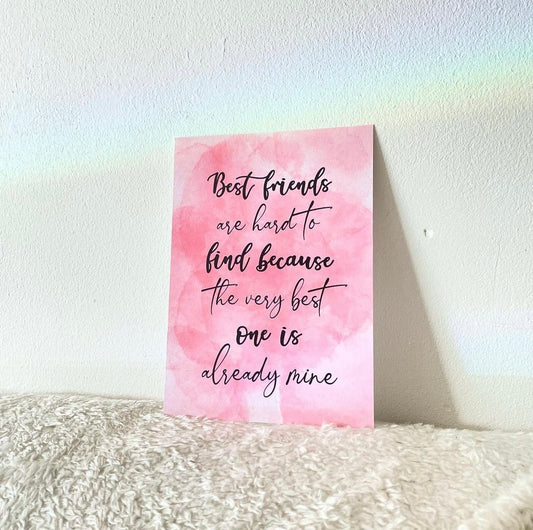 Best friends
are hard to
find because
the very best
one is
already mine